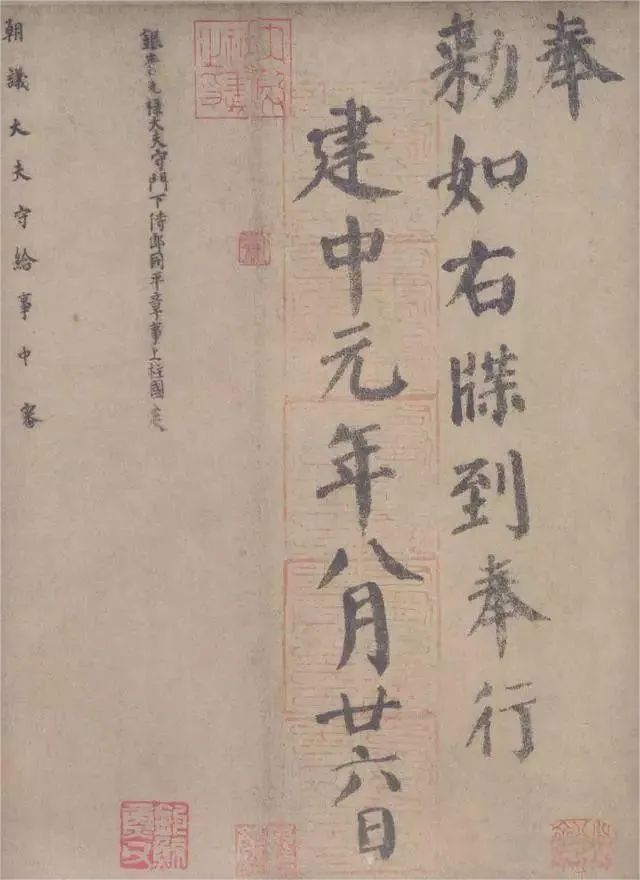 奉
勅如右牒到奉行
建中元年八月廿六日
銀青光祿大夫守門下侍郎同平章事上柱國炎
朝議大夫守給事中審